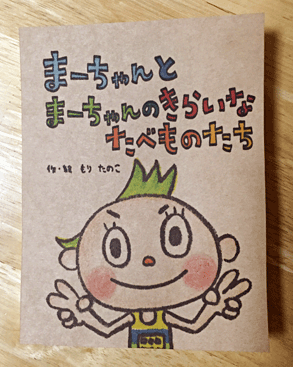 まーちゃんと
まーちゃんのきらいな
たべものたち
作・絵 もり たのこ